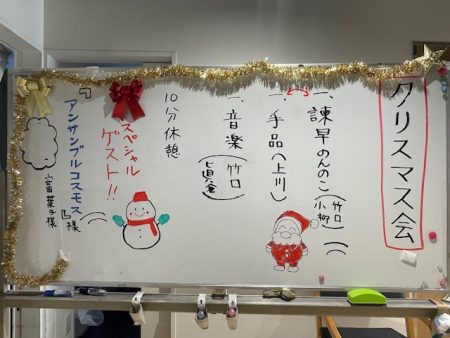 クリスマス会
一、諫早のんのこ(竹口 小柳)
一、手品(上川)
一、音楽(竹口
10分休憩
スペシャル
ゲスト!!
『アンサンブルコスモス』様